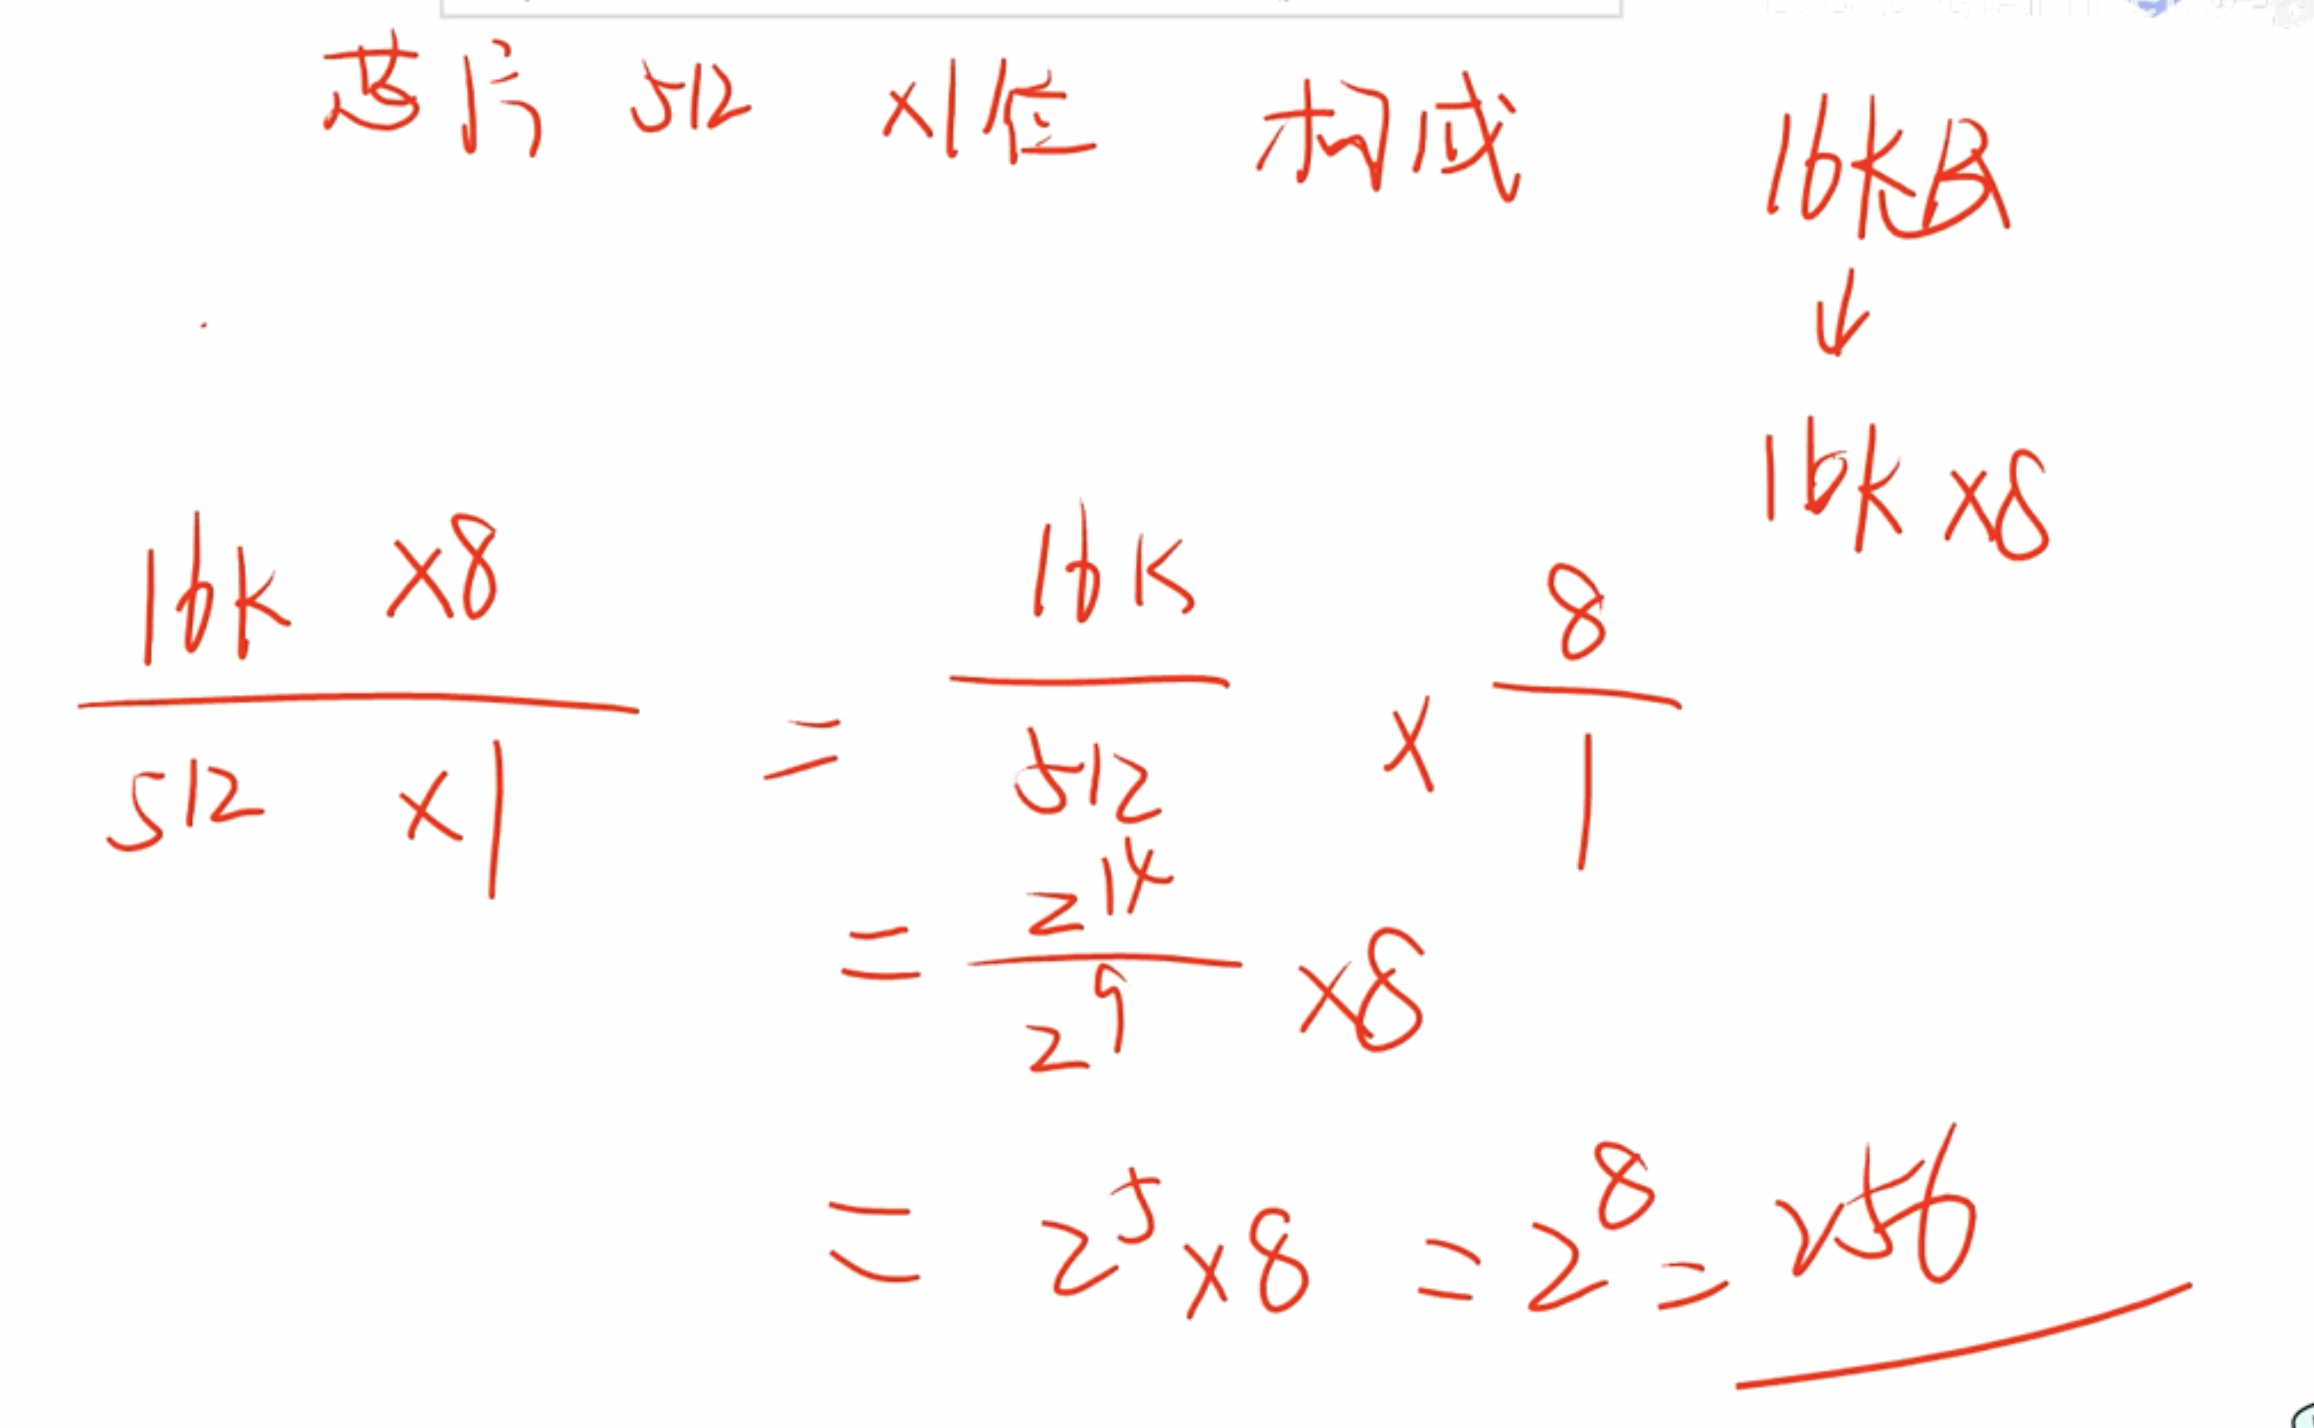 芯片 512 ×1位 构成 16KB
↓
16K ×8
16K ×8 / 512 ×1 = 16K / 512 × 8 / 1
= 2^14 / 2^9 ×8
= 2^5 ×8 = 2^8 = 256